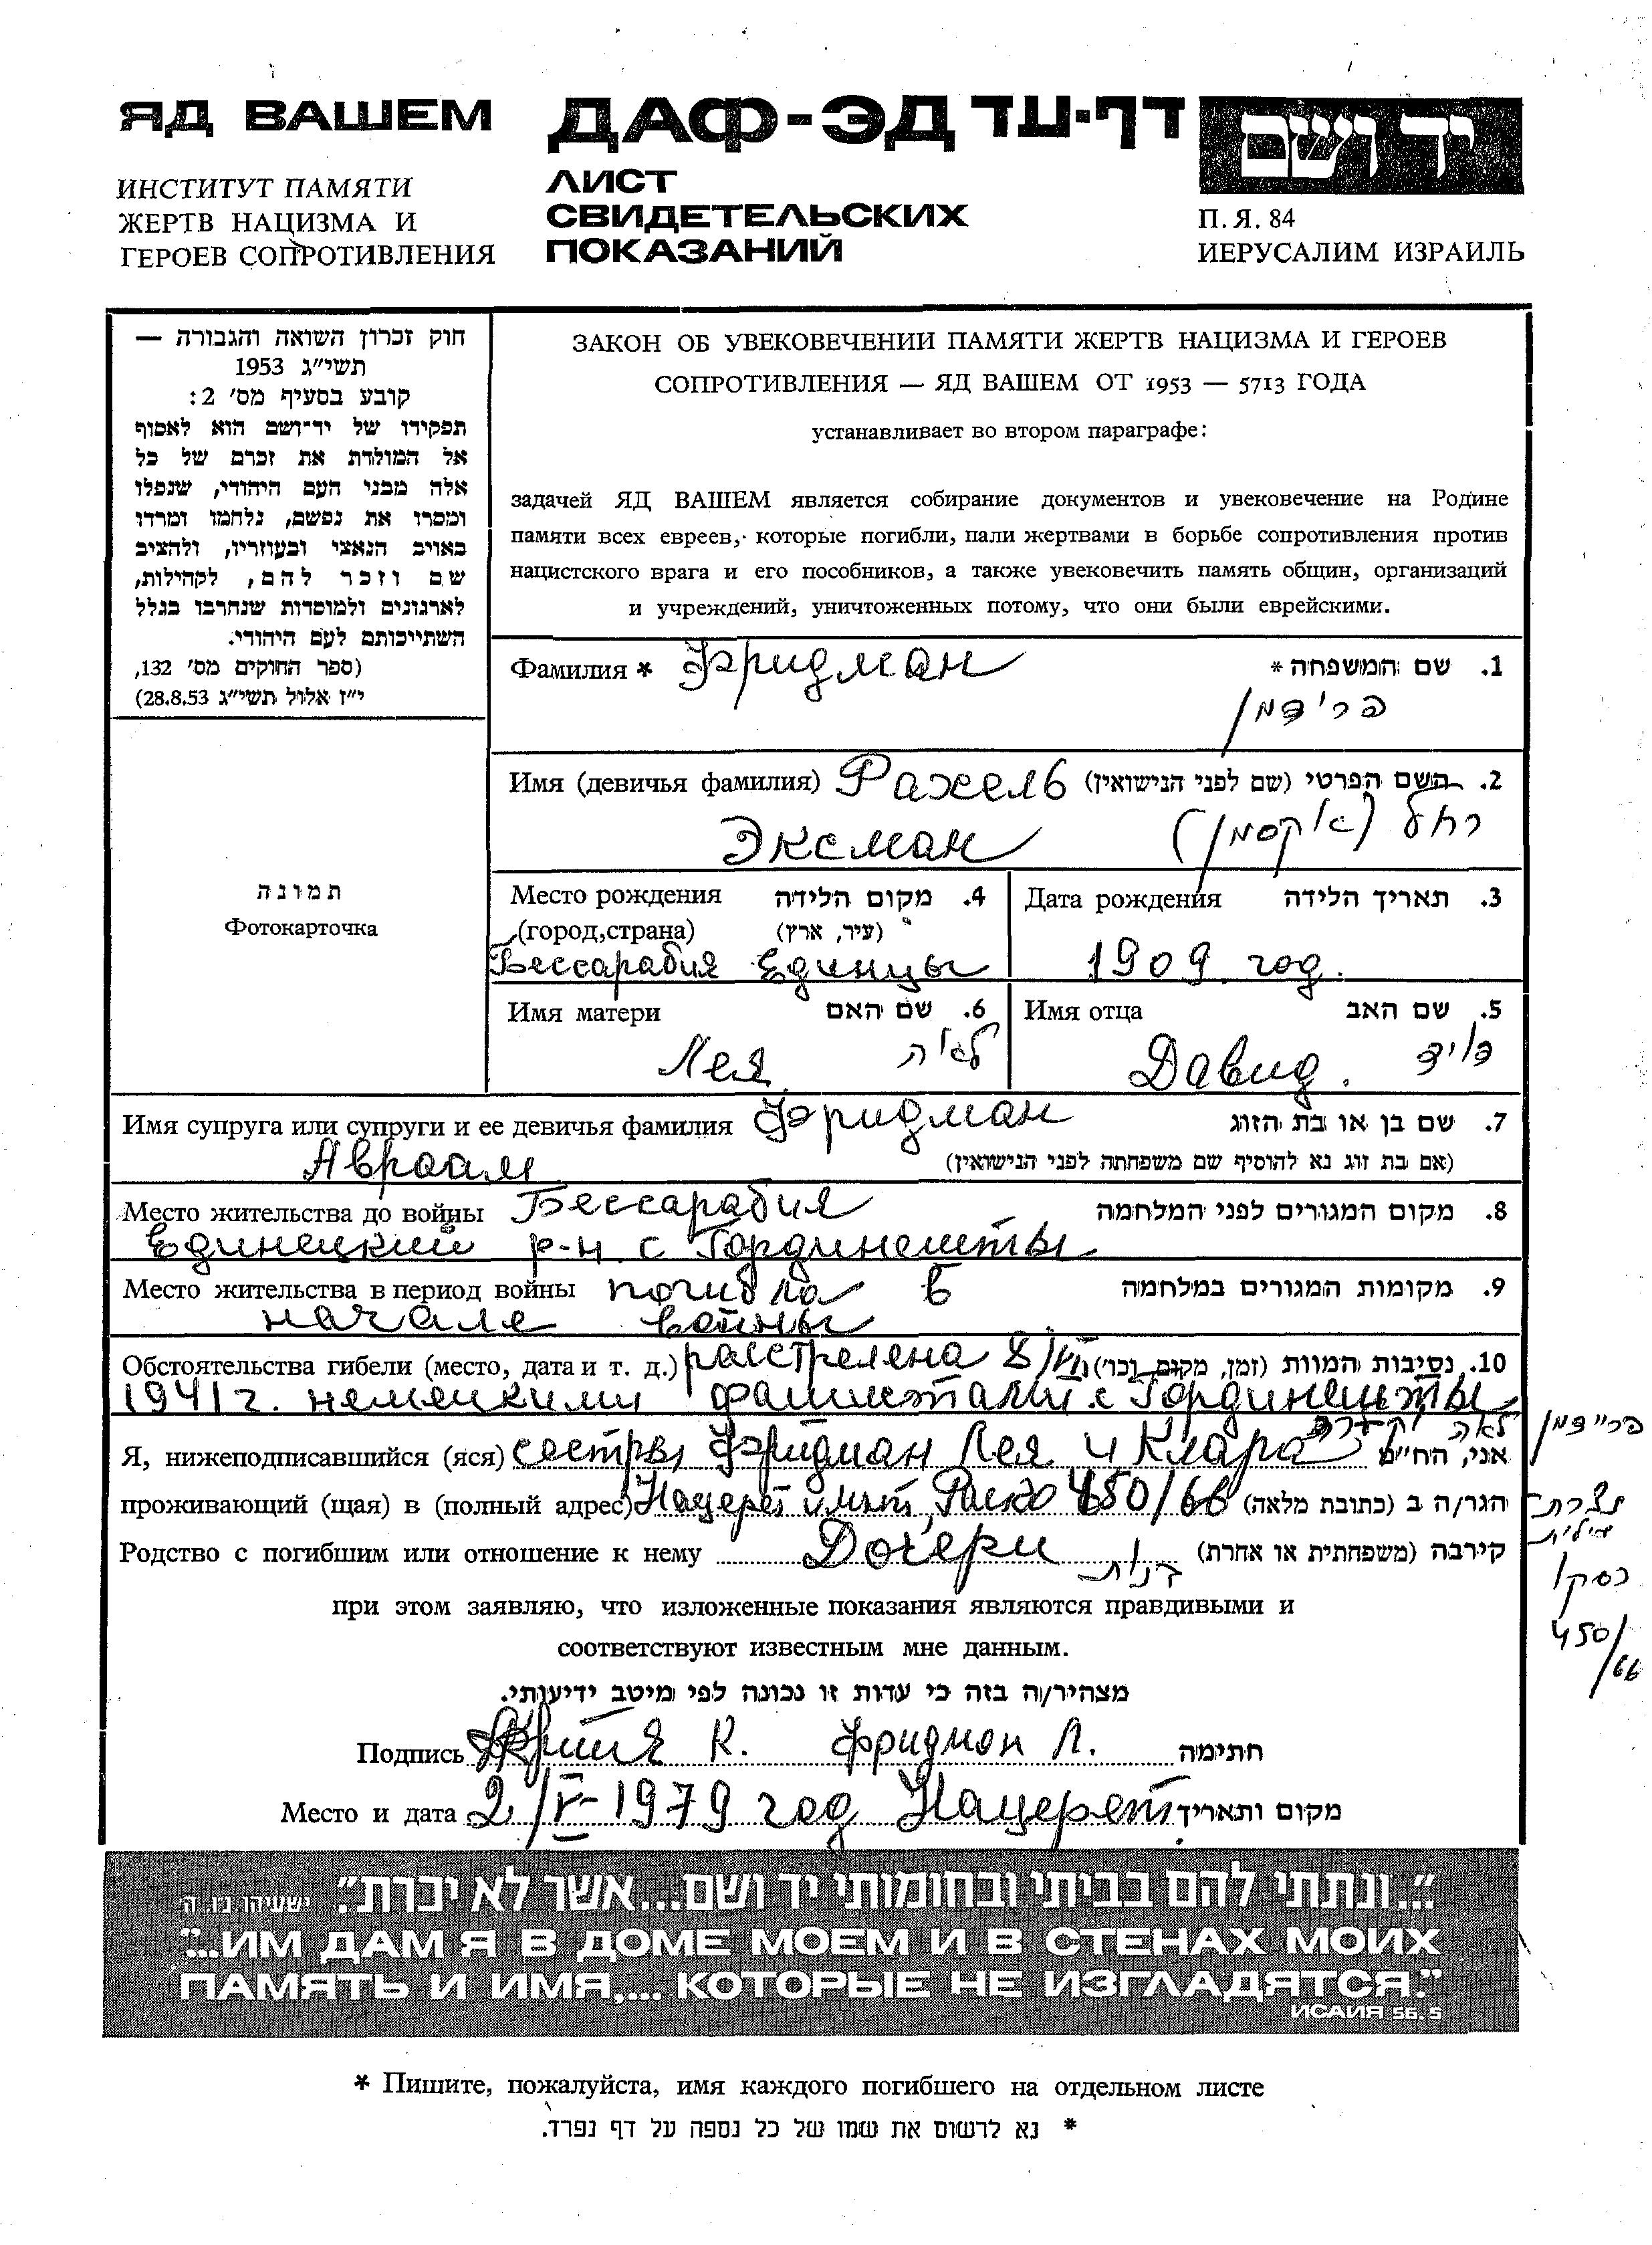 ЯД ВАШЕМ
ИНСТИТУТ ПАМЯТИ
ЖЕРТВ НАЦИЗМА И
ГЕРОЕВ СОПРОТИВЛЕНИЯ
ДАФ-ЭД דף-עד
ЛИСТ
СВИДЕТЕЛЬСКИХ
ПОКАЗАНИЙ
יד ושם
П. Я. 84
ИЕРУСАЛИМ ИЗРАИЛЬ
חוק זכרון השואה והגבורה —
תשי״ג 1953
קובע בסעיף מס׳ 2:
תפקידו של יד־ושם הוא לאסוף
אל המולדת את זכרם של כל
אלה מבני העם היהודי, שנפלו
ומסרו את נפשם, נלחמו ומרדו
באויב הנאצי ובעוזריו, ולהציב
שם וזכר להם, לקהילות,
לארגונים ולמוסדות שנחרבו בגלל
השתייכותם לעם היהודי.
(ספר החוקים מס׳ 132,
י״ז אלול תשי״ג 28.8.53)
תמונה
Фотокарточка
ЗАКОН ОБ УВЕКОВЕЧЕНИИ ПАМЯТИ ЖЕРТВ НАЦИЗМА И ГЕРОЕВ
СОПРОТИВЛЕНИЯ — ЯД ВАШЕМ ОТ 1953 — 5713 ГОДА
устанавливает во втором параграфе:
задачей ЯД ВАШЕМ является собирание документов и увековечение на Родине
памяти всех евреев, которые погибли, пали жертвами в борьбе сопротивления против
нацистского врага и его пособников, а также увековечить память общин, организаций
и учреждений, уничтоженных потому, что они были еврейскими.
Фамилия * Фридман 1. שם המשפחה *
פרידמן
Имя (девичья фамилия) Рахель 2. השם הפרטי (שם לפני הנישואין)
Эксман רחל (אקסמן)
Место рождения 4. מקום הלידה
(город,страна) (עיר, ארץ)
Бессарабия Единцы
Дата рождения 3. תאריך הלידה
1909 год.
Имя матери 6. שם האם
Лея לאה
Имя отца 5. שם האב
Давид. דוד
Имя супруга или супруги и ее девичья фамилия Фридман 7. שם בן או בת הזוג
Авраам (אם בת זוג נא להוסיף שם משפחתה לפני הנישואין)
Место жительства до войны Бессарабия 8. מקום המגורים לפני המלחמה
Единецкий р-н с Гординешты
Место жительства в период войны погибла в 9. מקומות המגורים במלחמה
начале войны
Обстоятельства гибели (место, дата и т. д.) расстрелена 8/VII 10. נסיבות המוות (זמן, מקום, וכו׳)
1941 г. немецкими фашистами с Гординешты
לאה פרידמן
Я, нижеподписавшийся (яся) сестры Фридман Лея и Клара אני, הח״מ
проживающий (щая) в (полный адрес) Нацерет илит, Раско 450/66 הגר/ה ב (כתובת מלאה)
נצרת
עילית
רסקו
450/
66
Родство с погибшим или отношение к нему Дочери קירבה (משפחתית או אחרת)
בנות
при этом заявляю, что изложенные показания являются правдивыми и
соответствуют известным мне данным.
מצהיר/ה בזה כי עדות זו נכונה לפי מיטב ידיעותי.
Подпись К. Фридман Л. חתימה
Место и дата 2/V-1979 год Нацерет. מקום ותאריך
"...ונתתי להם בביתי ובחומותי יד ושם...אשר לא יכרת." ישעיהו נו, ה
"...ИМ ДАМ Я В ДОМЕ МОЕМ И В СТЕНАХ МОИХ
ПАМЯТЬ И ИМЯ,... КОТОРЫЕ НЕ ИЗГЛАДЯТСЯ."
ИСАИЯ 56. 5
* Пишите, пожалуйста, имя каждого погибшего на отдельном листе
* נא לרשום את שמו של כל נספה על דף נפרד.